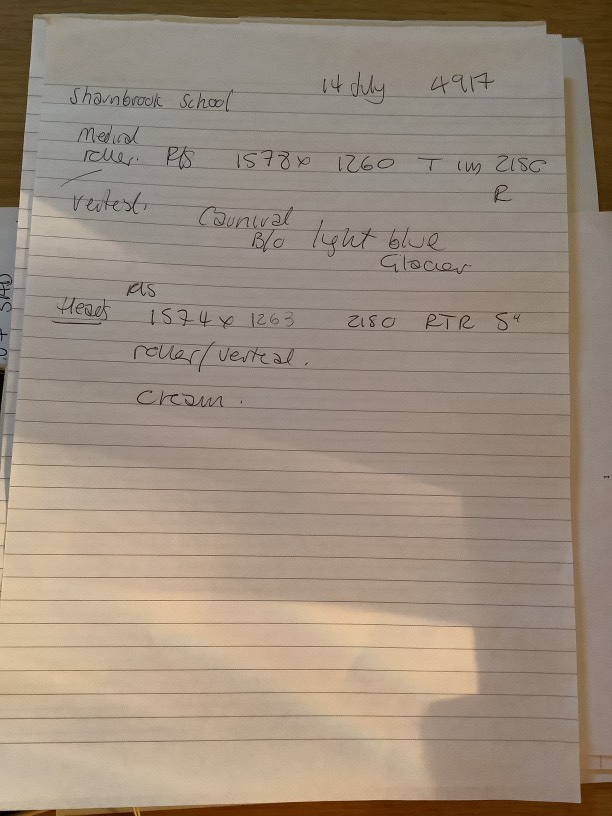 14 July 4917
Sharnbrook School
Medical
roller. P/S 1578 x 1260 T 1M 2150
R
Vertical.
Carnival
B/O light blue
Glacier
P/S
Heads 1574 x 1263 2150 RTR 5"
roller/vertical.
Cream.